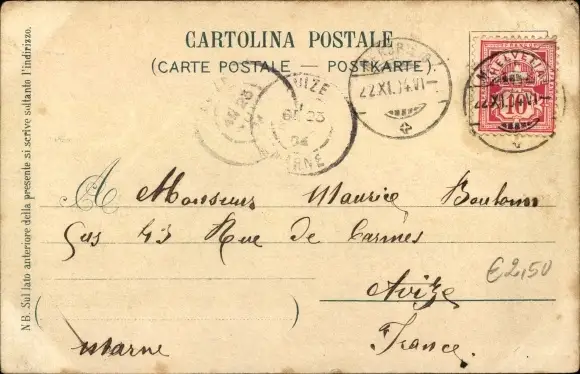 CARTOLINA POSTALE
(CARTE POSTALE — POSTKARTE).
22.XI.04.VI
HELVETIA
22.XI.04.VI
10
23
AVIZE
23
04
MARNE
A Monsieur Maurice
43 Rue de Carmes
€2,50
Avize
Marne
France.
NB. Sul lato anteriore della presente si scrive soltanto l'indirizzo.